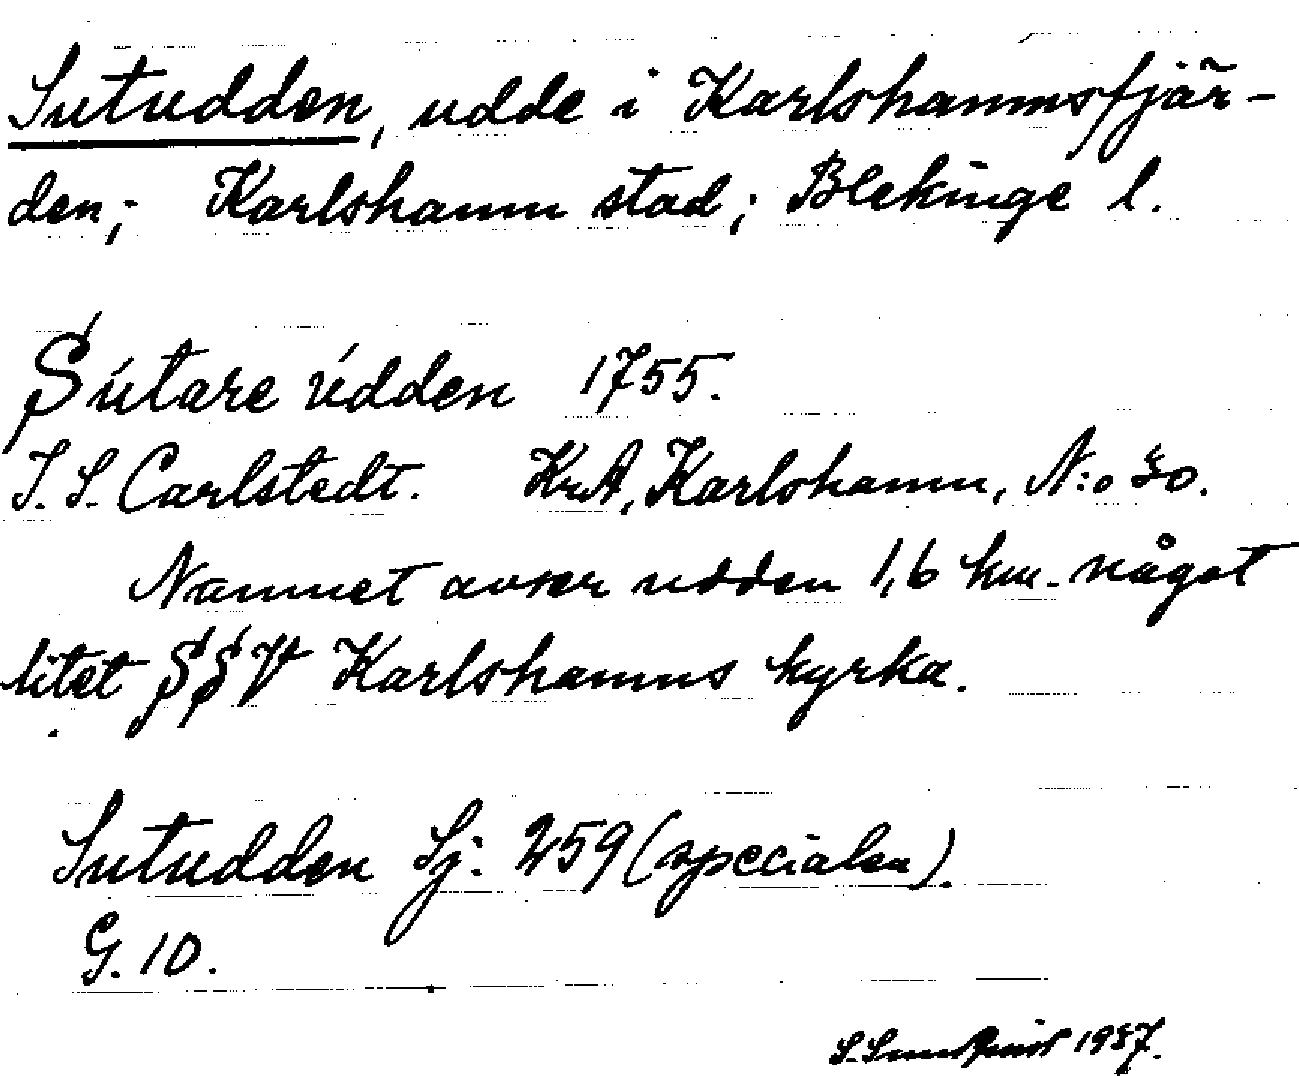 Sutudden, udde i Karlshamnsfjär-
den; Karlshamn stad; Blekinge l.
Sútare údden 1755.
J. S. Carlstedt. KrA, Karlshamn, N:o 30.
Namnet avser udden 1,6 km. något
litet SSV Karlshamns kyrka.
Sutudden Sj. 259 (specialen).
G. 10.
S. Sundqvist 1937.